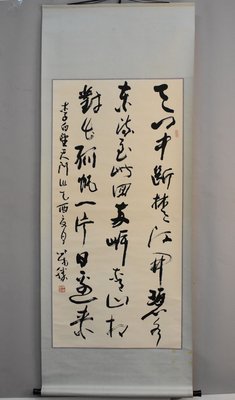 天门中断楚江开碧水
东流至此回两岸青山相
对出孤帆一片日边来
李白望天门山乙酉夏月